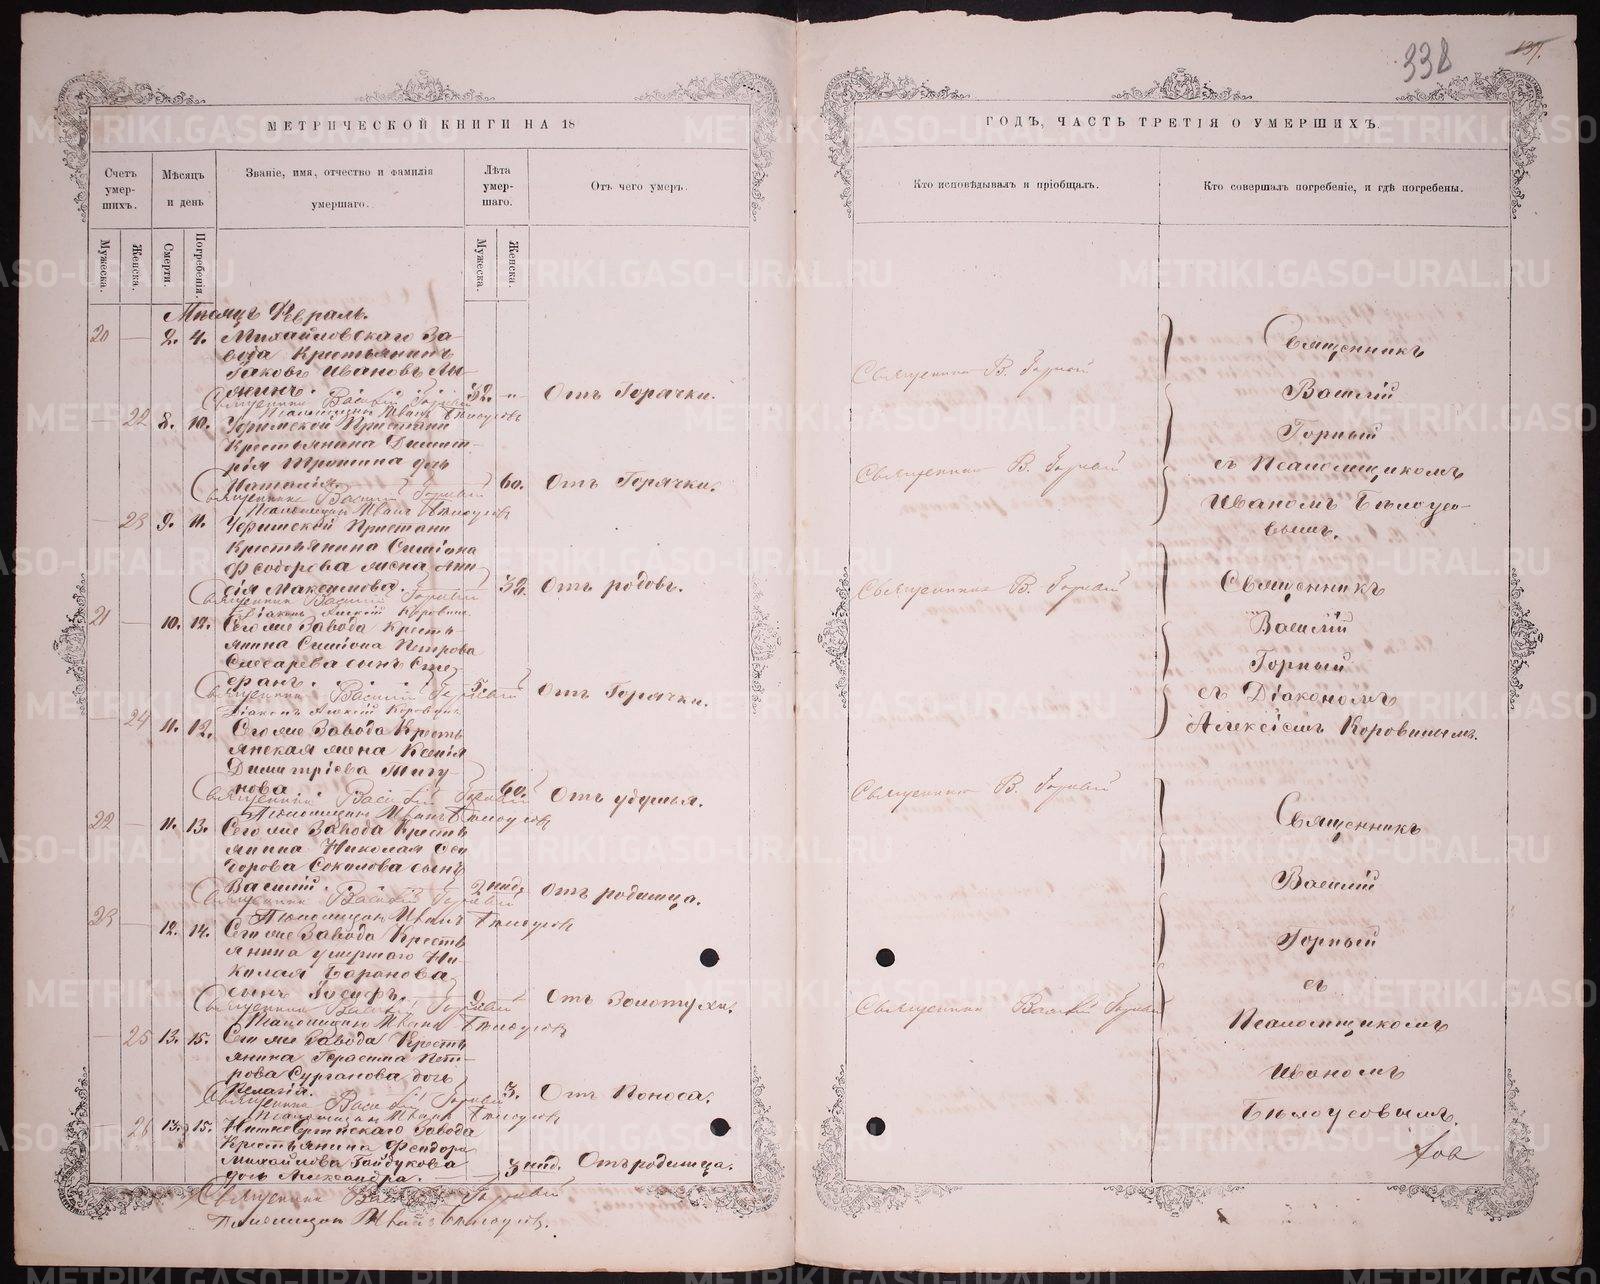 338
137.
МЕТРИЧЕСКОЙ КНИГИ НА 18
ГОДЪ, ЧАСТЬ ТРЕТІЯ О УМЕРШИХЪ.
Счетъ умер-шихъ.
Мѣсяцъ и день
Званіе, имя, отчество и фамилія умершаго.
Лѣта умер-шаго.
Отъ чего умеръ.
Кто исповѣдывалъ и пріобщалъ.
Кто совершалъ погребеніе, и гдѣ погребены.
Мужеска.
Женска.
Смерти.
Погребенія.
Мужеска.
Женска.
Мѣсяцъ Февраль.
20 — 2. 4. Михайловскаго За-
вода Крестьянинъ
Іаковъ Ивановъ
52. Отъ Горячки.
Священникъ Василій Горный
Псаломщикъ Иванъ Бѣлоусовъ
Священникъ В. Горный
— 22 8. 10. Уфимской Пристани
Крестьянина Димит-
рія дочь
Наталія. 60. Отъ Горячки.
Священникъ Василій Горный
Псаломщикъ Иванъ Бѣлоусовъ
Священникъ В. Горный
— 23 9. 11. Уфимской Пристани
Крестьянина Симіона
Феодорова жена
Максимова. 32. Отъ родовъ.
Священникъ Василій Горный
Діаконъ Алексій Коровинъ
Священникъ В. Горный
21 — 10. 12. Сего же Завода Кресть-
янина Симіона Петрова
Слесарева сынъ Сте-
фанъ. 5. Отъ Горячки.
Священникъ Василій Горный
Діаконъ Алексій Коровинъ
— 24 11. 12. Сего же Завода Кресть-
янская жена Ксенія
Димитріева
60. Отъ удушья.
Священникъ Василій Горный
Псаломщикъ Иванъ Бѣлоусовъ
Священникъ В. Горный
22 — 11. 13. Сего же Завода Кресть-
янина Николая Фео-
дорова Соколова сынъ
Василій. 2 нед. Отъ родимца.
Священникъ Василій Горный
Псаломщикъ Иванъ Бѣлоусовъ
23 — 12. 14. Сего же Завода Кресть-
янина умершаго Ни-
колая Баранова
сынъ Іосифъ. 9. Отъ Золотухи.
Священникъ Василій Горный
Псаломщикъ Иванъ Бѣлоусовъ
Священникъ Василій Горный
— 25 13. 15. Сего же Завода Кресть-
янина Герасима Пет-
рова Сурганова дочь
Пелагія. 3. Отъ Поноса.
Священникъ Василій Горный
Псаломщикъ Иванъ Бѣлоусовъ
— 26 13. 15. Нижнесергинскаго Завода
Крестьянина Феодора
Михайлова Гайдукова
дочь Александра. 3 нед. Отъ родимца.
Священникъ Василій Горный
Псаломщикъ Иванъ Бѣлоусовъ.
Священникъ
Василій
Горный
съ Псаломщикомъ
Иваномъ Бѣлоусо-
вымъ.
Священникъ
Василій
Горный
съ Діакономъ
Алексіемъ Коровинымъ.
Священникъ
Василій
Горный
съ
Псаломщикомъ
Иваномъ
Бѣлоусовымъ.
METRIKI.GASO-URAL.RU